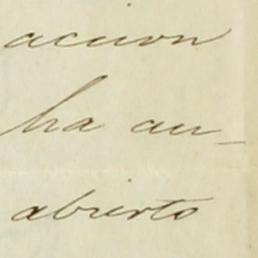 acción
ha au-
abierto